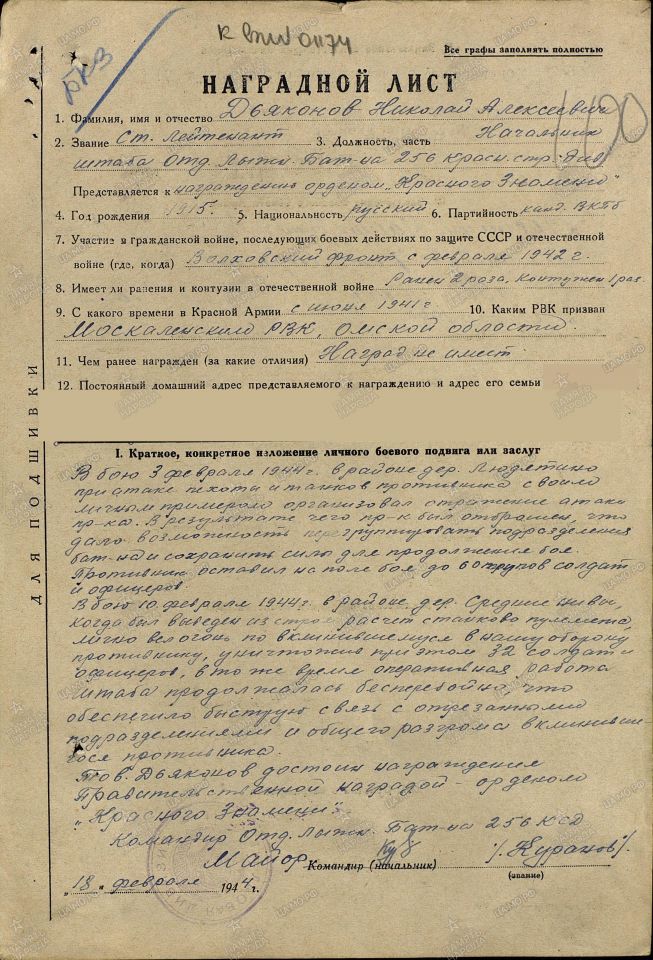 К вх№ 01174
БКЗ
Все графы заполнять полностью
НАГРАДНОЙ ЛИСТ
1. Фамилия, имя и отчество Дьяконов Николай Алексеевич
2. Звание Ст. Лейтенант 3. Должность, часть Начальник
штаба Отд. Лыжн. Бат-на 256 Красн. стр. Див.
Представляется к награждению орденом „Красного Знамени"
4. Год рождения 1915г. 5. Национальность русский 6. Партийность канд. ВКПб
7. Участие в гражданской войне, последующих боевых действиях по защите СССР и отечественной
войне (где, когда) Волховский фронт с февраля 1942 г.
8. Имеет ли ранения и контузии в отечественной войне Ранен 2 раза, контужен 1 раз.
9. С какого времени в Красной Армии с июня 1941г. 10. Каким РВК призван
Москаленским РВК, Омской области.
11. Чем ранее награжден (за какие отличия) Наград не имеет.
12. Постоянный домашний адрес представляемого к награждению и адрес его семьи
ДЛЯ ПОДШИВКИ
I. Краткое, конкретное изложение личного боевого подвига или заслуг
В бою 3 февраля 1944г. в районе дер. Людятино
при атаке пехоты и танков противника своим
личным примером организовал отражение атаки
пр-ка. В результате чего пр-к был отброшен, что
дало возможность перегруппировать подразделения
бат-на и сохранить силы для продолжения боя.
Противник оставил на поле боя до 60 трупов солдат
и офицеров.
В бою 10 февраля 1944г. в районе дер. Средние нивы,
когда был выведен из строя расчет станкового пулемета
лично вел огонь по вклинившемуся в нашу оборону
противнику, уничтожив при этом 32 солдат и
офицеров, в то же время оперативная работа
штаба продолжалась бесперебойно, что
обеспечило быструю связь с отрезанными
подразделениями и общего разгрома вклинивше-
гося противника.
Тов. Дьяконов достоин награждения
Правительственной наградой - орденом
„Красного Знамени"
Командир Отд. Лыжн. Бат-на 256 КСД
Майор Командир (начальник) /. Куранов/.
(звание)
„18" февраля 1944г.